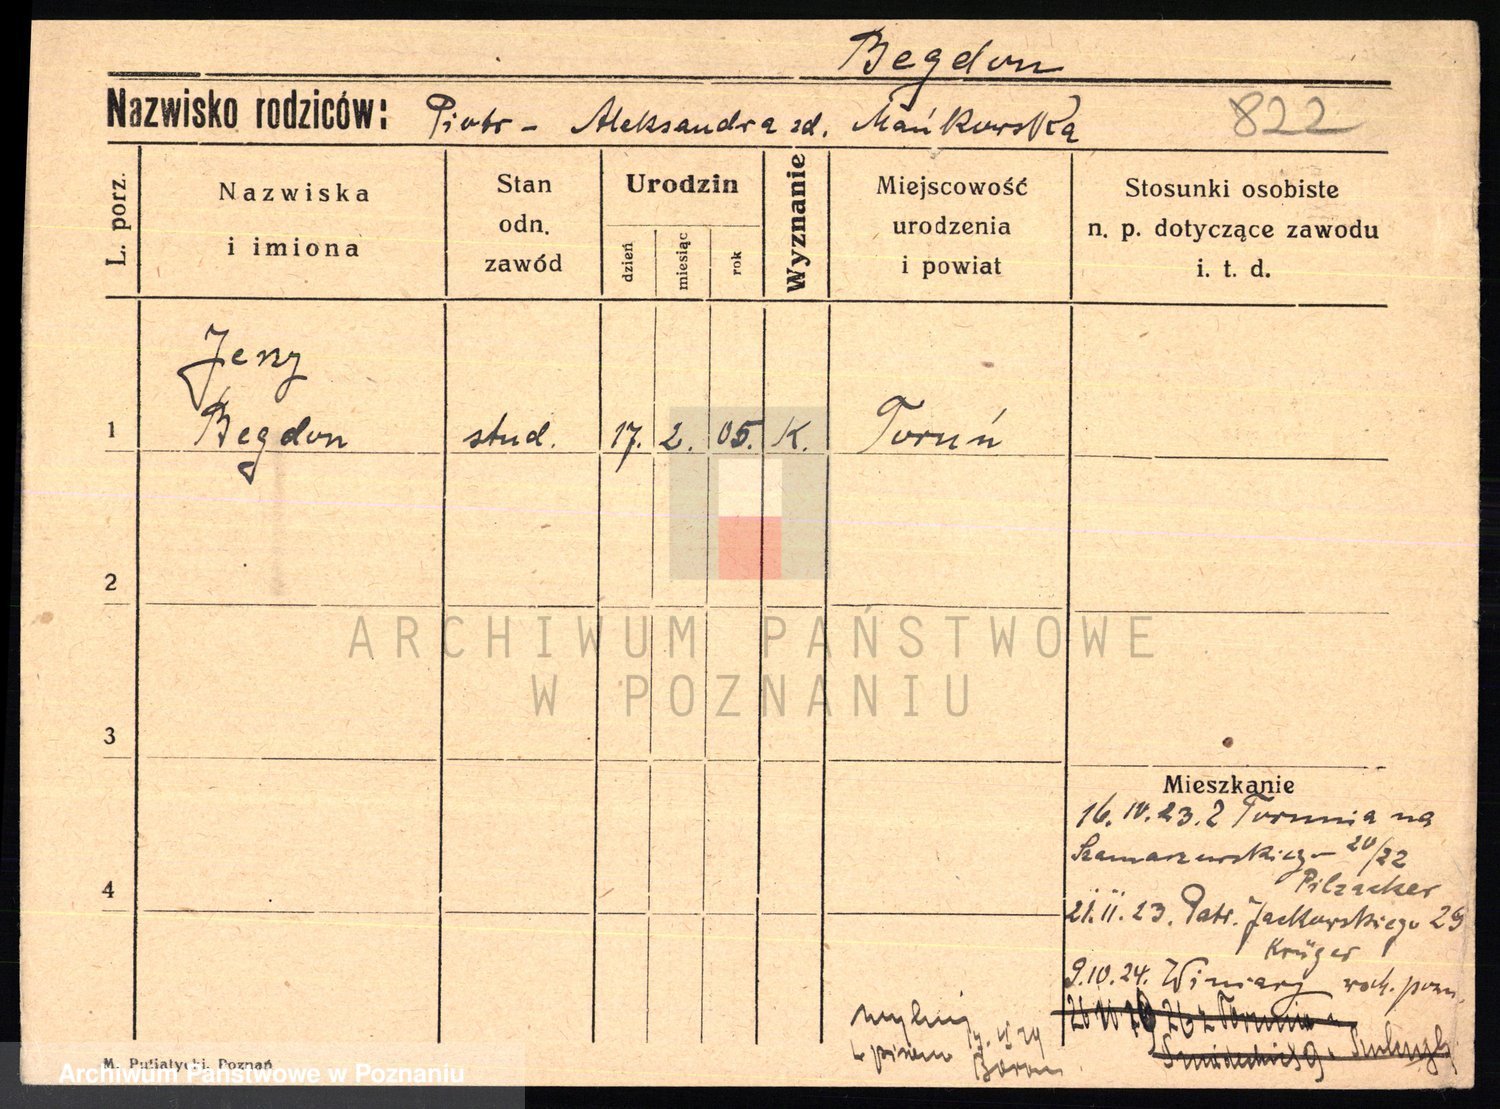 Begdon
Nazwisko rodziców: Piotr – Aleksandra zd. Mańkowska 822
L. porz.
Nazwiska i imiona
Stan odn. zawód
Urodzin
dzień miesiąc rok
Wyznanie
Miejscowość urodzenia i powiat
Stosunki osobiste n. p. dotyczące zawodu i. t. d.
Jerzy
1 Begdon stud. 17. 2. 05. K. Toruń
2
3
4
ARCHIWUM PAŃSTWOWE
W POZNANIU
Mieszkanie
16. IV. 23. z Torunia na
Szamarzewskiego 20/22
Pilzacker
21. II. 23. Patr. Jackowskiego 29
Krüger
9.10.24. Winiary
26 z Torunia
Baron
M. Putiatycki, Poznań
Archiwum Państwowe w Poznaniu